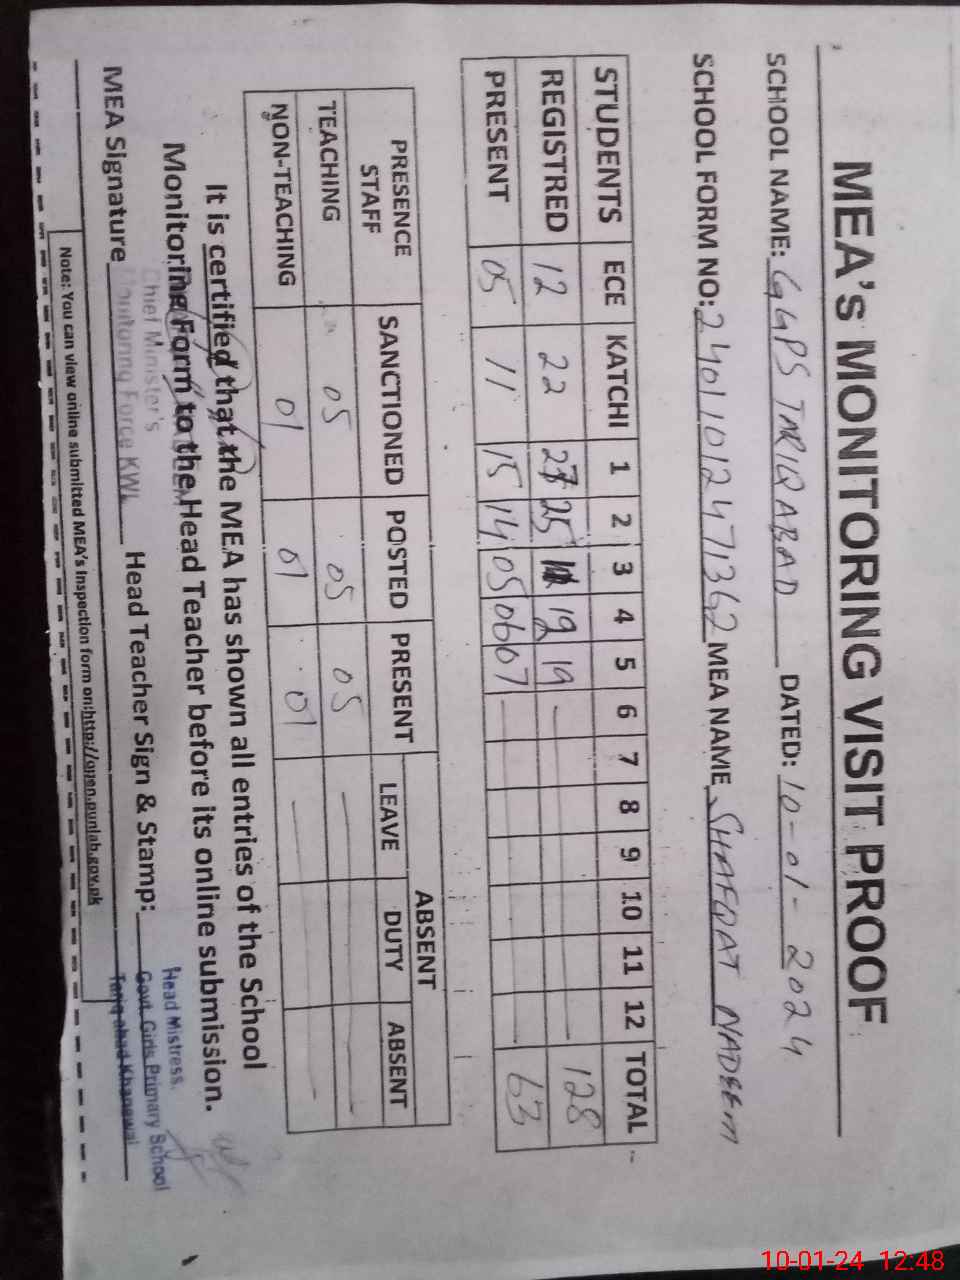 MEA's MONITORING VISIT PROOF
SCHOOL NAME: GGPS TARIQABAD DATED: 10-01-2024
SCHOOL FORM NO: 24011012471362 MEA NAME SHAFQAT NADEEM
STUDENTS ECE KATCHI 1 2 3 4 5 6 7 8 9 10 11 12 TOTAL
REGISTRED 12 22 27 25 19 19 — 128
PRESENT 05 11 15 14 05 06 07 — 63
PRESENCE STAFF SANCTIONED POSTED PRESENT ABSENT
LEAVE DUTY ABSENT
TEACHING 05 05 05
NON-TEACHING 01 01 01
It is certified that the MEA has shown all entries of the School
Monitoring Form to the Head Teacher before its online submission.
MEA Signature Head Teacher Sign & Stamp:
Chief Minister's
Monitoring Force KWL
Head Mistress.
Govt. Girls Primary School
Tariq abad Khanewal
Note: You can view online submitted MEA's Inspection form on:http://open.punlab.gov.pk
10-01-24 12:48